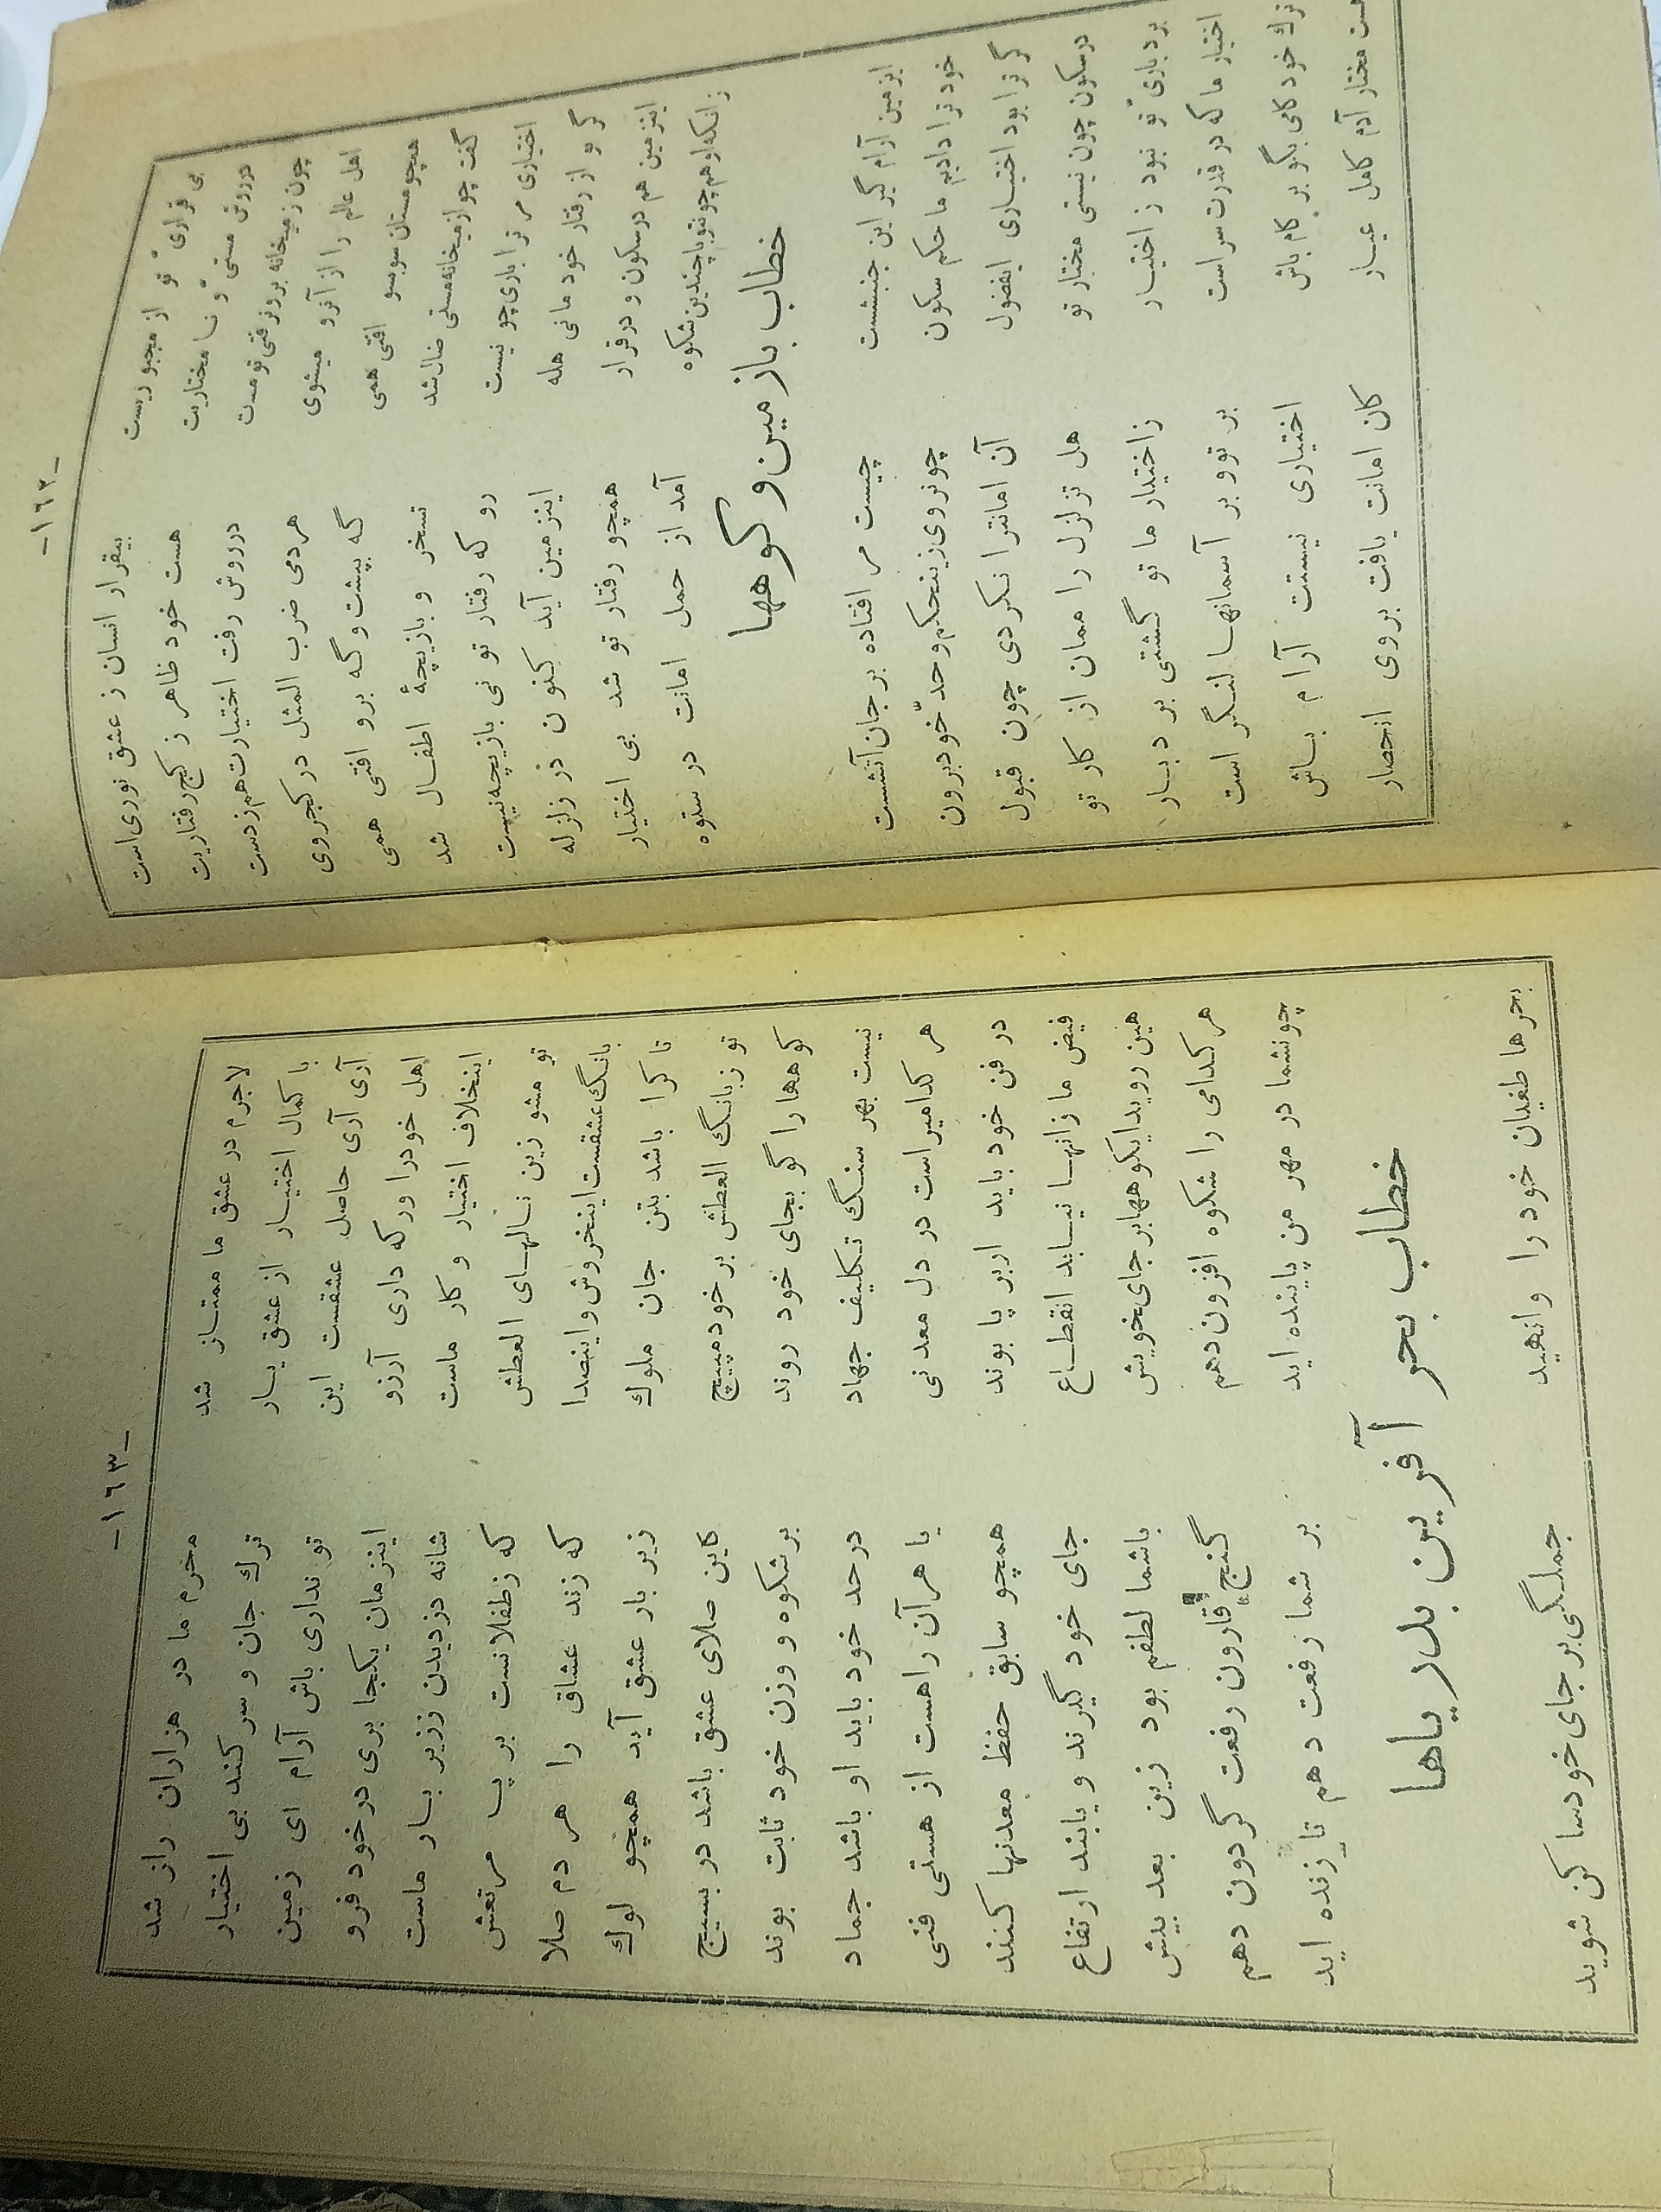 -۱۶۲-
بی قراریٔ تو از مجبوریست بیقرار انسان ز عشق نوری است
درروش مستی و نا مختاریت هست خود ظاهر ز کج رفتاریت
چون زمیخانه برون رفتی تومست درروش رفت اختیارت هم زدست
اهل عالم را از آنرو میشوی هردمی ضرب المثل در کجروی
همچو مستان سوبسو افتی همی گه بپشت و گه برو افتی همی
گفت چو ازمیخانه مستی ضال شد تسخر و بازیچهٔ اطفال شد
اختیاری مر ترا باری چو نیست رو که رفتار تو نی بازیچه نیست
گر تو از رفتار خود مانی هله اینزمین آید کنون در زلزله
اینزمین هم درسکون و درقرار همچو رفتار تو شد بی اختیار
زانکه اوهم چو تو باچندین شکوه آمد از حمل امانت در ستوه
خطاب بازمین و کوهها
ایزمین آرام گیر این جنبشت چیست مر افتاده بر جان آتشت
خود ترا دادیم ما حکم سکون چونروی زینحکم وحدّ خود برون
گر ترا بود اختیاری ایفضول آن امانترا نکردی چون قبول
درسکون چون نیستی مختار تو هل تزلزل را ممان از کار تو
بردباریٔ تو نبود ز اختیار زاختیار ما تو گشتی بردبار
اختیار ما که در قدرت سر است بر تو و بر آسمانها لنگر است
ترك خودکامی بگو بر کام باش اختیاری نیستت آرام باش
مختار آدم کامل عیار کان امانت یافت بروی انحصار
-۱۶۳-
لاجرم در عشق ما ممتاز شد محرم ما در هزاران راز شد
با کمال اختیار از عشق یار ترك جان و سر کند بی اختیار
آری آری حاصل عشقست این تو نداری باش آرام ای زمین
اهل خودرا ورکه داری آرزو اینزمان یکجا بری در خود فرو
اینخلاف اختیار و کار ماست شانه دزدیدن ززیر بار ماست
تو مشو زین نالهای العطش که زطفلانست بر پا مرتعش
بانگ عشقست اینخروش و اینصدا که زند عشاق را هر دم صلا
تا کرا باشد بتن جان ملوك زیر بار عشق آید همچو لوك
تو زبانگ العطش بر خود مپیچ کاین صلای عشق باشد در بسیج
کوهها را گو بجای خود روند برشکوه و وزن خود ثابت بوند
نیست بهر سنگ تکلیف جهاد درحد خود باید او باشد جماد
هر کدامیراست در دل معدنی یا هرآن راهست از هستی فنی
در فن خود باید اربر پا بوند همچو سابق حفظ معدنها کنند
فیض ما زانها نیابد انقطاع جای خود گیرند و یابند ارتفاع
هین روید ایکوهها بر جای خویش باشما لطفم بود زین بعد بیش
هر کدامی را شکوه افزون دهم گنج قارون رفعت گردون دهم
چونشما در مهر من پاینده اید بر شما رفعت دهم تا زنده اید
خطاب بحر آفرین بدریاها
بحرها طغیان خود را وانهید جملگی بر جای خود ساکن شوید